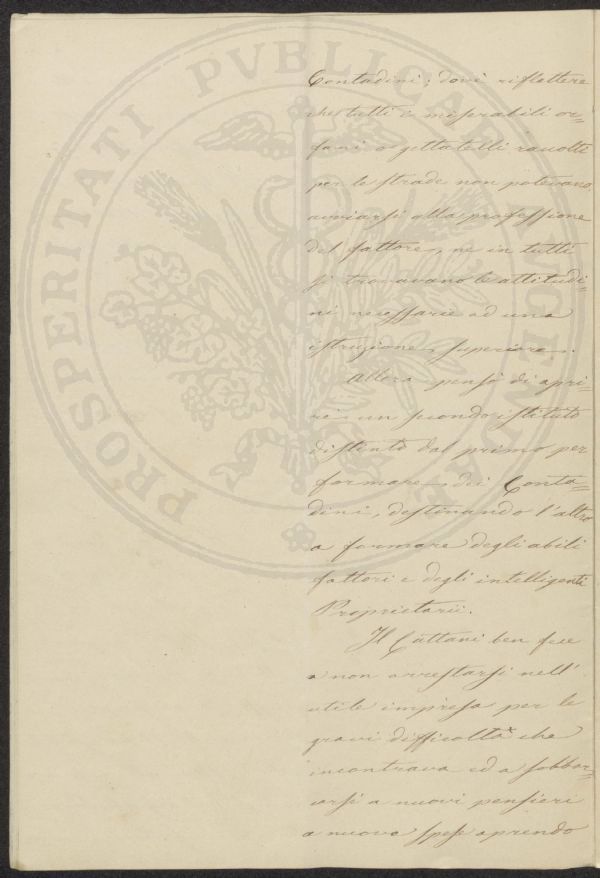 PROSPERITATI PVBLICAE AVGENDAE
Contadini; dovè riflettere
che tutti i miserabili or=
fani o gettatelli raccolti
per le strade non potevano
avviarsi alla professione
del fattore, ne in tutti
si trovavano le attitudi=
ni necessarie ad una
istruzione superiore.
Allora pensò di apri=
re un secondo istituto
distinto dal primo per
formare dei Conta=
dini, destinando l'altro
a formare degli abili
fattori e degli intelligenti
Proprietarii.
Il Cattani ben fece
a non arrestarsi nell'
utile impresa per le
gravi difficoltà che
incontrava ed a sobbar=
carsi a nuovi pensieri
a nuove spese aprendo